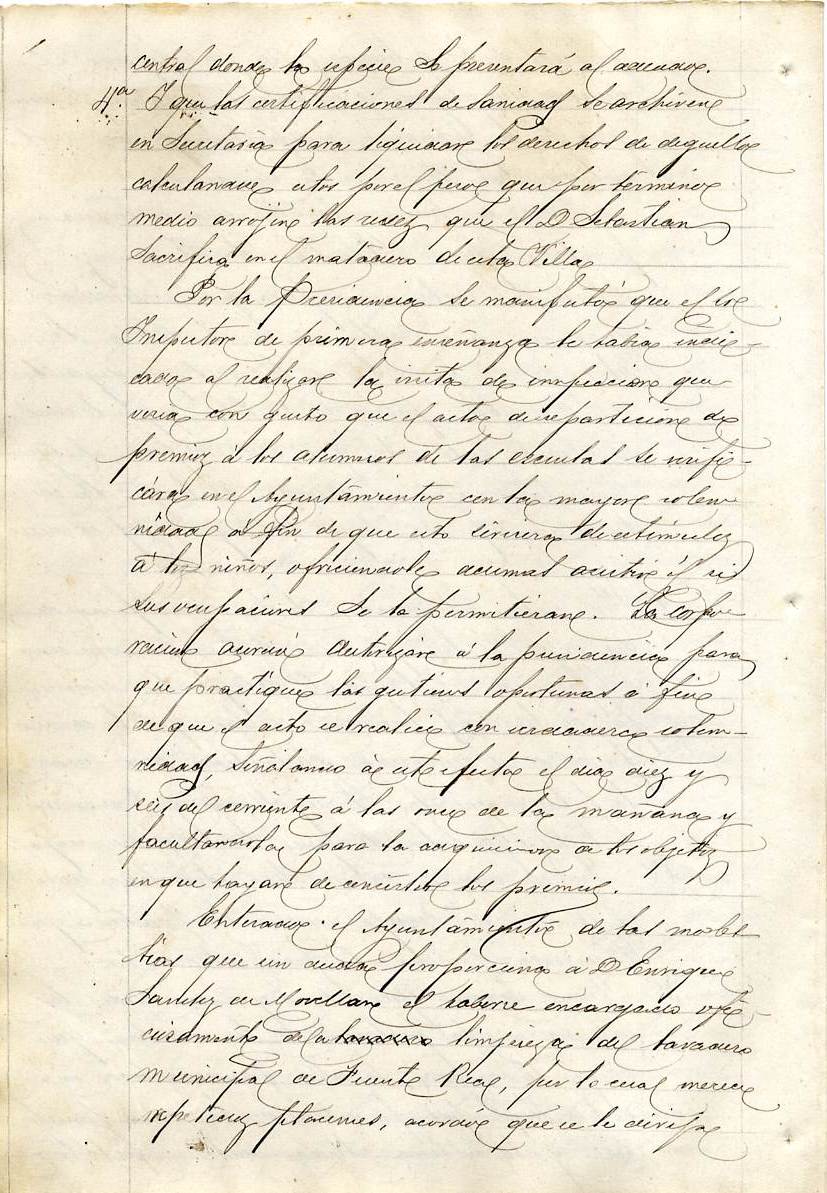 central donde la oficie se presentará al adeudo.
4ª Y que las certificaciones de Sanidad se archiven
en Secretaría para liquidar los derechos de deguello
calculandose estos por el peso que por término
medio arrojen las reses que el D Sebastian
Sacrifica en el matadero de esta Villa
Por la Presidencia se manifestó que el Sor
Inspector de primera enseñanza le habia indi-
cado al realizar la visita de inspeccion que
veria con gusto que el acto de reparticion de
premios á los alumnos de las escuelas se verifi-
cára en el Ayuntamiento con la mayor solem
nidad á fin de que esto sirviera de estimulo
á los niños, ofreciendole ademas asistir él si
sus ocupaciones se lo permitieran. La Corpo
racion acordó autorizar á la presidencia para
que practique las gestiones oportunas á fin
de que el acto se realice con verdadera solem-
nidad, señalando á este efecto el dia diez y
seis del corriente á las once de la mañana y
facultandola para la adquisicion de los objetos
en que hayan de consistir los premios.
Enterado el Ayuntamiento de las moles
tias que sin duda proporciona á D Enrique
Sanchez de Movellan el haberse encargado ofi-
ciosamente de la limpieza del lavadero
municipal de Fuente Real, por lo cual merece
repetidos plácemes, acordó que se le dirija